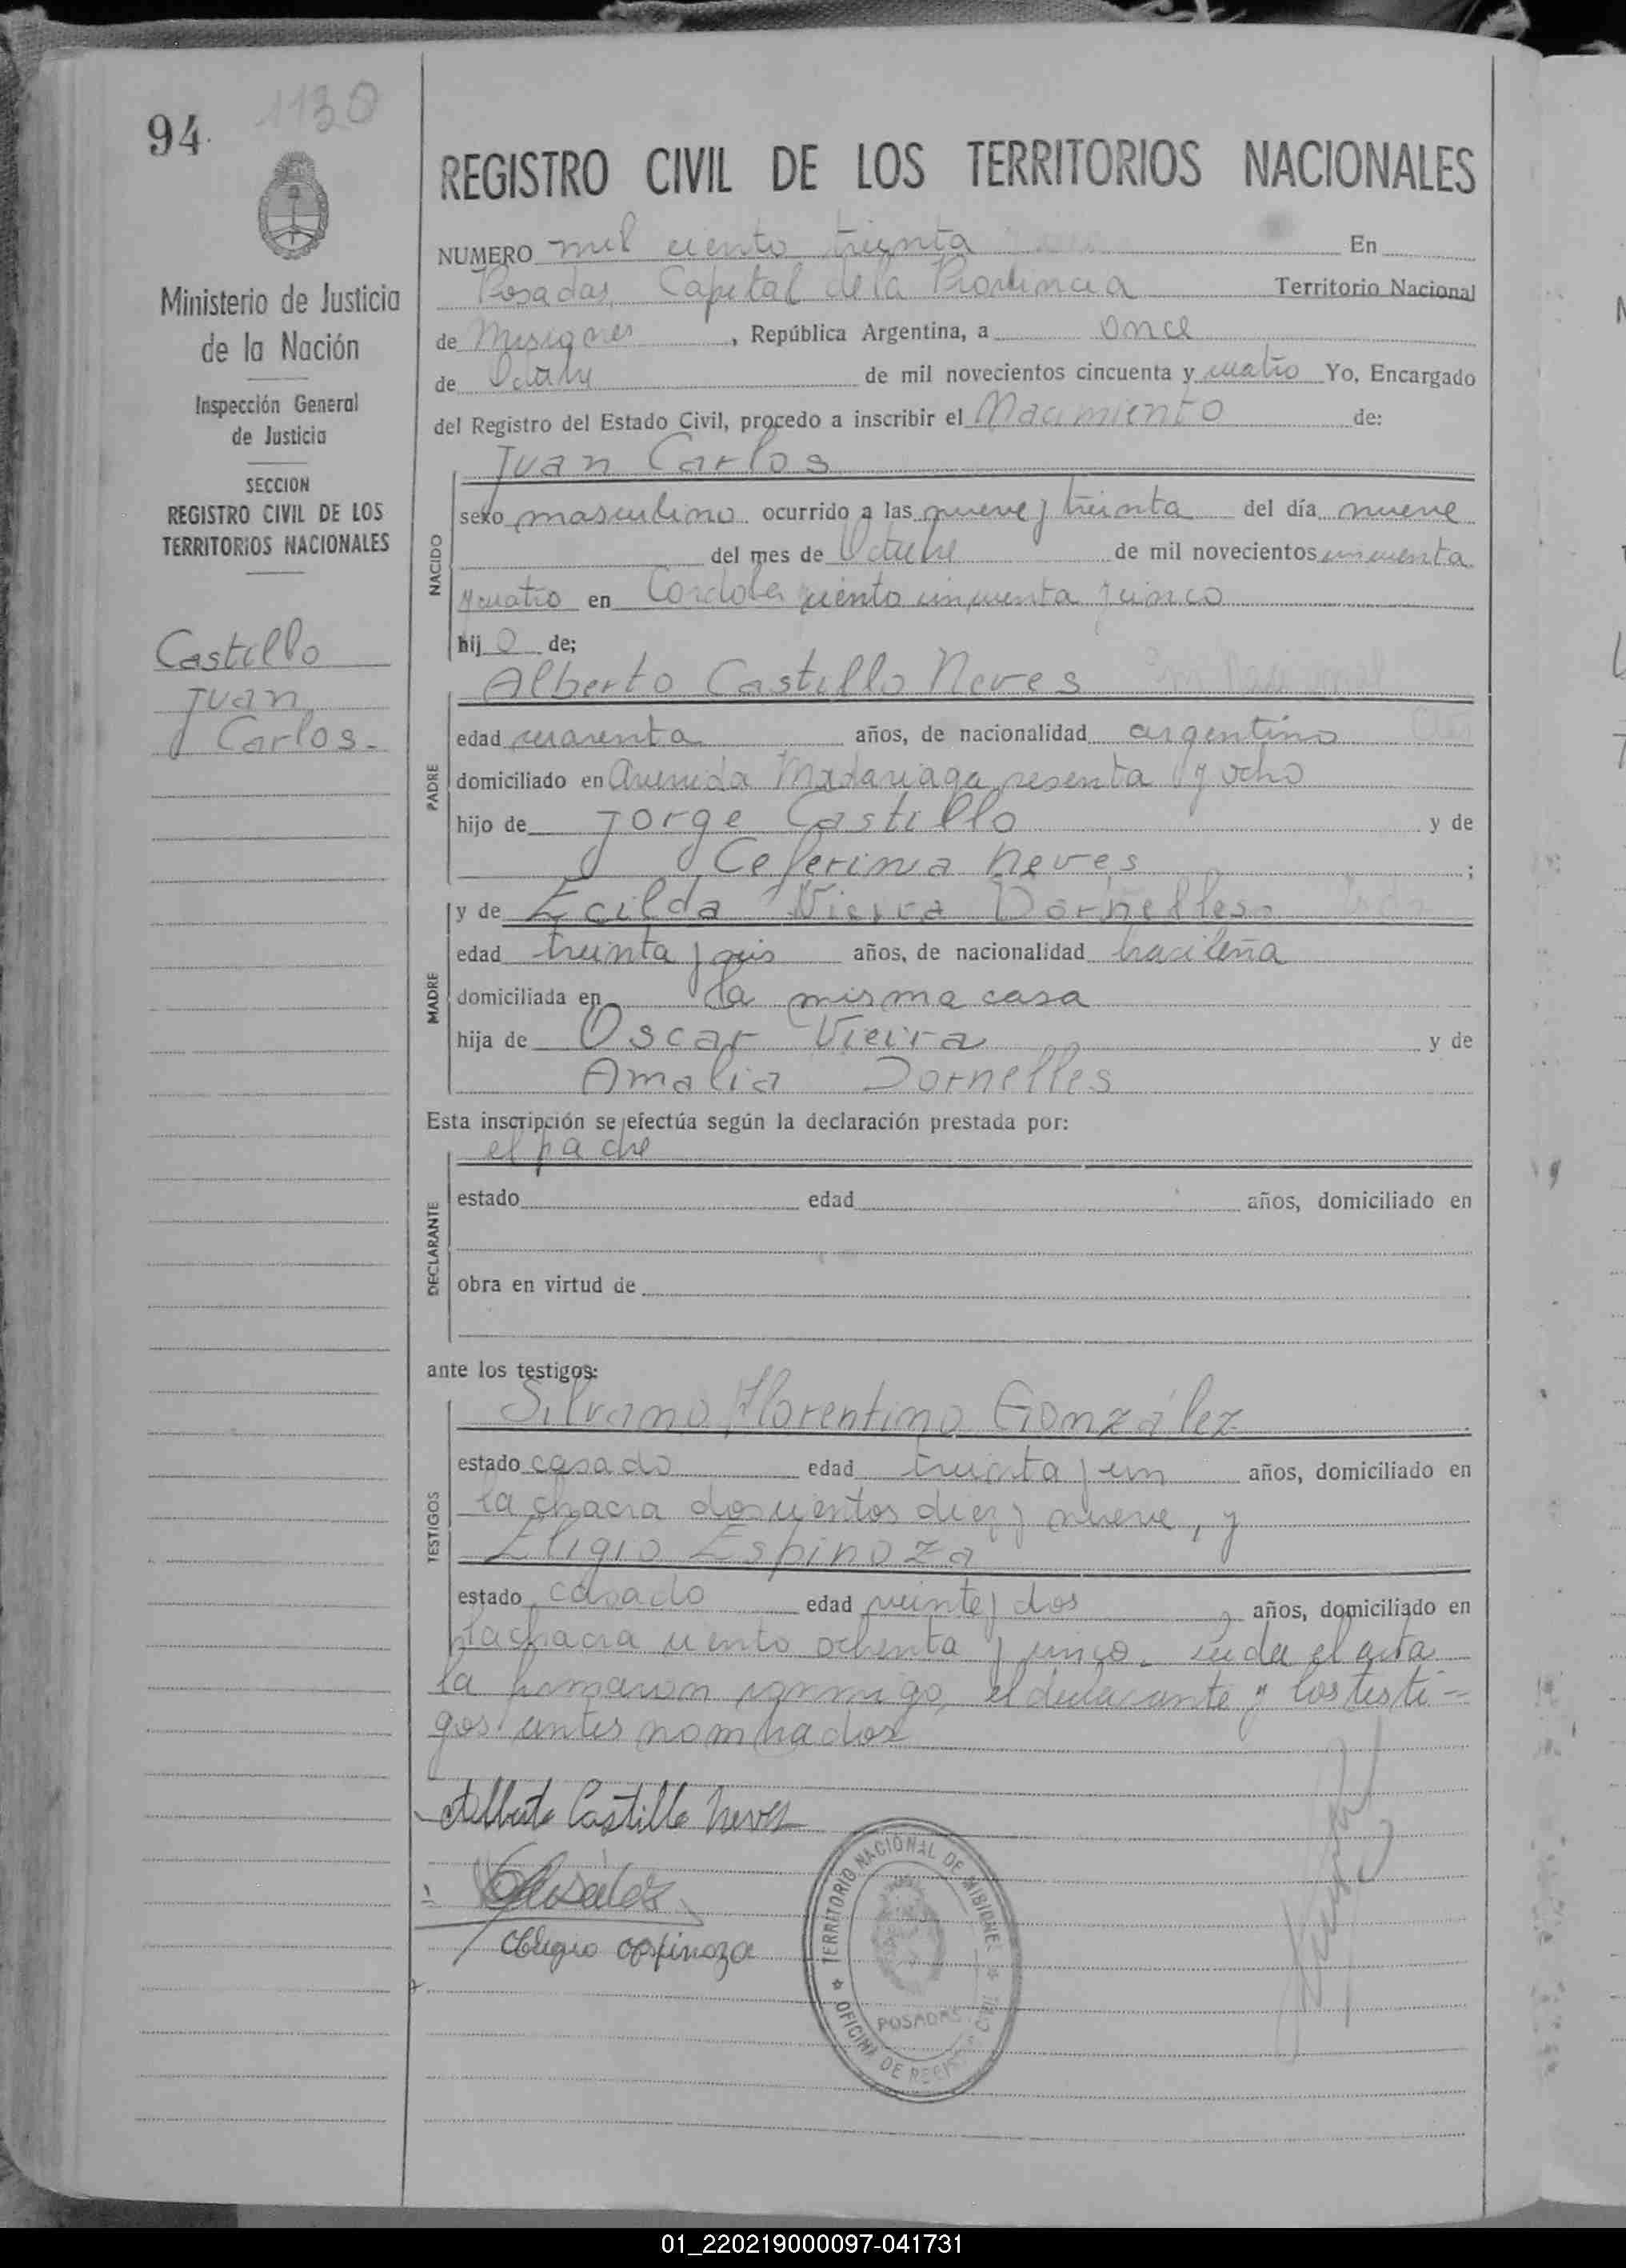 94.
1130
Ministerio de Justicia
de la Nación
Inspección General
de Justicia
SECCION
REGISTRO CIVIL DE LOS
TERRITORIOS NACIONALES
Castillo
Juan
Carlos.-
REGISTRO CIVIL DE LOS TERRITORIOS NACIONALES
NUMERO mil ciento treinta En
Posadas, Capital de la Provincia Territorio Nacional
de Misiones, República Argentina, a once
de Octubre de mil novecientos cincuenta y cuatro Yo, Encargado
del Registro del Estado Civil, procedo a inscribir el Nacimiento de:
NACIDO
Juan Carlos
sexo masculino ocurrido a las nueve y treinta del día nueve
del mes de Octubre de mil novecientos cincuenta
y cuatro en Cordoba ciento cincuenta y cinco
hijo de;
PADRE
Alberto Castillo Neves
edad cuarenta años, de nacionalidad argentino
domiciliado en Avenida Madariaga sesenta y ocho
hijo de Jorge Castillo y de
Ceferina Neves ;
MADRE
y de Ecilda Vieira Dornelles
edad treinta y seis años, de nacionalidad brasileña
domiciliada en la misma casa
hija de Oscar Vieira y de
Amalia Dornelles
Esta inscripción se efectúa según la declaración prestada por:
DECLARANTE
el padre
estado edad años, domiciliado en
obra en virtud de
ante los testigos:
TESTIGOS
Silvano Florentino González
estado casado edad treinta y un años, domiciliado en
la chacra doscientos diez y nueve, y
Eligio Espinoza
estado casado edad veinte y dos años, domiciliado en
la chacra ciento ochenta y cinco. Leída el acta
la firmaron conmigo, el declarante y los testi-
gos antes nombrados
Alberto Castillo Neves
Eligio Espinoza
TERRITORIO NACIONAL DE MISIONES
OFICINA DE REGISTRO CIVIL
POSADAS
01_220219000097-041731